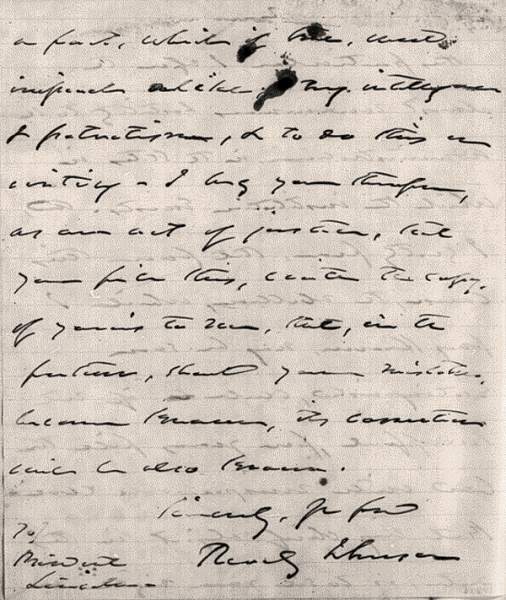 a fact, which if true, would
impeach alike my intelligence
& patriotism, & to do this in
writing - I beg you therefore,
as an act of justice, that
you file this, with the copy,
of yours to me, that, in the
future, should your mistake,
become known, its correction
will be also known.
Sincerely,
Reverdy Johnson
To/
President
Lincoln -